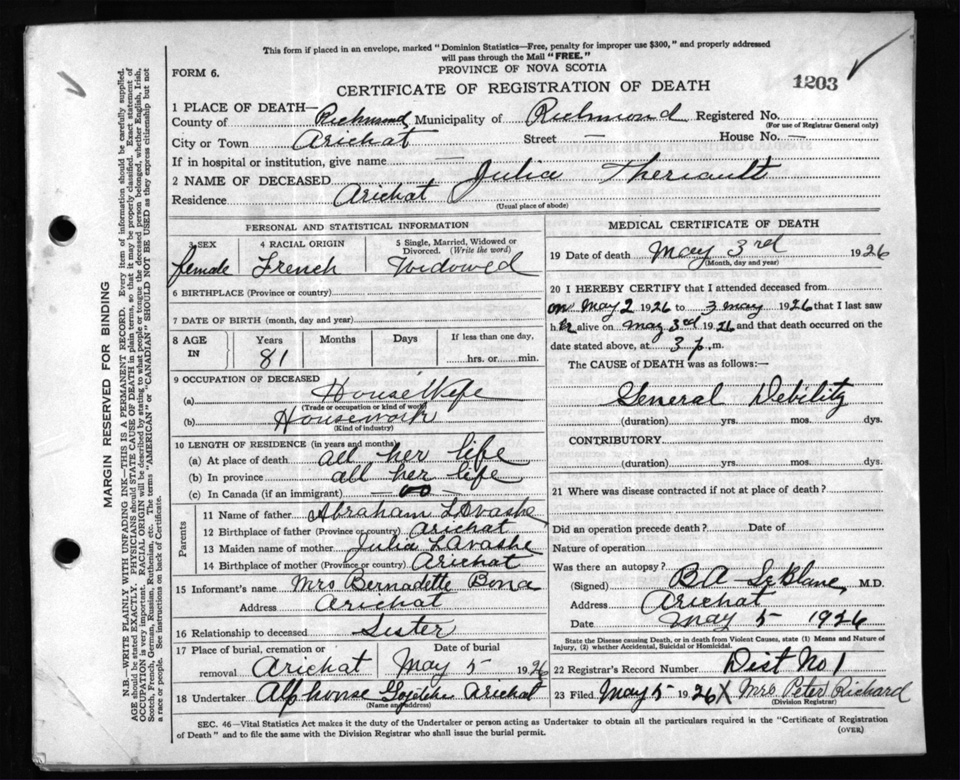 This form if placed in an envelope, marked "Dominion Statistics—Free, penalty for improper use $300," and properly addressed
will pass through the Mail "FREE."
FORM 6.
PROVINCE OF NOVA SCOTIA
1203
CERTIFICATE OF REGISTRATION OF DEATH
1 PLACE OF DEATH—
County of Richmond Municipality of Richmond Registered No.
(For use of Registrar General only)
City or Town Arichat Street — House No. —
If in hospital or institution, give name —
2 NAME OF DECEASED Julia Theriault
Residence Arichat
(Usual place of abode)
PERSONAL AND STATISTICAL INFORMATION
3 SEX 4 RACIAL ORIGIN 5 Single, Married, Widowed or Divorced. (Write the word)
female French Widowed
6 BIRTHPLACE (Province or country)
7 DATE OF BIRTH (month, day and year)
8 AGE IN Years Months Days If less than one day,
81 hrs. or min.
9 OCCUPATION OF DECEASED
(a) House Wife
(Trade or occupation or kind of work)
(b) Housework
(Kind of industry)
10 LENGTH OF RESIDENCE (in years and months)
(a) At place of death all her life
(b) In province all her life
(c) In Canada (if an immigrant)
Parents
11 Name of father Abraham
12 Birthplace of father (Province or country) Arichat
13 Maiden name of mother Julia LAvashe
14 Birthplace of mother (Province or country) Arichat
15 Informant's name Mrs Bernadette Bona
Address Arichat
16 Relationship to deceased Sister
17 Place of burial, cremation or removal Date of burial
Arichat May 5 1926
18 Undertaker Alphonse Arichat
(Name and address)
MEDICAL CERTIFICATE OF DEATH
19 Date of death May 3rd 1926
(Month, day and year)
20 I HEREBY CERTIFY that I attended deceased from
on May 2 1926 to 3 may 1926 that I last saw
her alive on may 3rd 1926 and that death occurred on the
date stated above, at 3 p.m.
The CAUSE OF DEATH was as follows:—
General Debility
(duration) yrs. mos. dys.
CONTRIBUTORY
(duration) yrs. mos. dys.
21 Where was disease contracted if not at place of death?
Did an operation precede death? Date of
Nature of operation
Was there an autopsy?
(Signed) B A LeBlanc, M.D.
Address Arichat
Date May 5 1926
State the Disease causing Death, or in death from Violent Causes, state (1) Means and Nature of
Injury, (2) whether Accidental, Suicidal or Homicidal.
22 Registrar's Record Number Dist No 1
23 Filed May 5 1926 X Mrs Peter Richard
(Division Registrar)
SEC. 46—Vital Statistics Act makes it the duty of the Undertaker or person acting as Undertaker to obtain all the particulars required in the "Certificate of Registration
of Death" and to file the same with the Division Registrar who shall issue the burial permit.
(OVER)
MARGIN RESERVED FOR BINDING
N.B.—WRITE PLAINLY WITH UNFADING INK—THIS IS A PERMANENT RECORD. Every item of information should be carefully supplied.
AGE should be stated EXACTLY. PHYSICIANS should STATE CAUSE OF DEATH in plain terms, so that it may be properly classified. Exact statement of
OCCUPATION is very important. RACIAL ORIGIN will be described by stating to what people or tongue the deceased person belonged, whether English, Irish,
Scotch, French, German, Russian, Ruthenian, etc. The terms "AMERICAN" or "CANADIAN" SHOULD NOT BE USED as they express citizenship but not
a race or people. See instructions on back of Certificate.